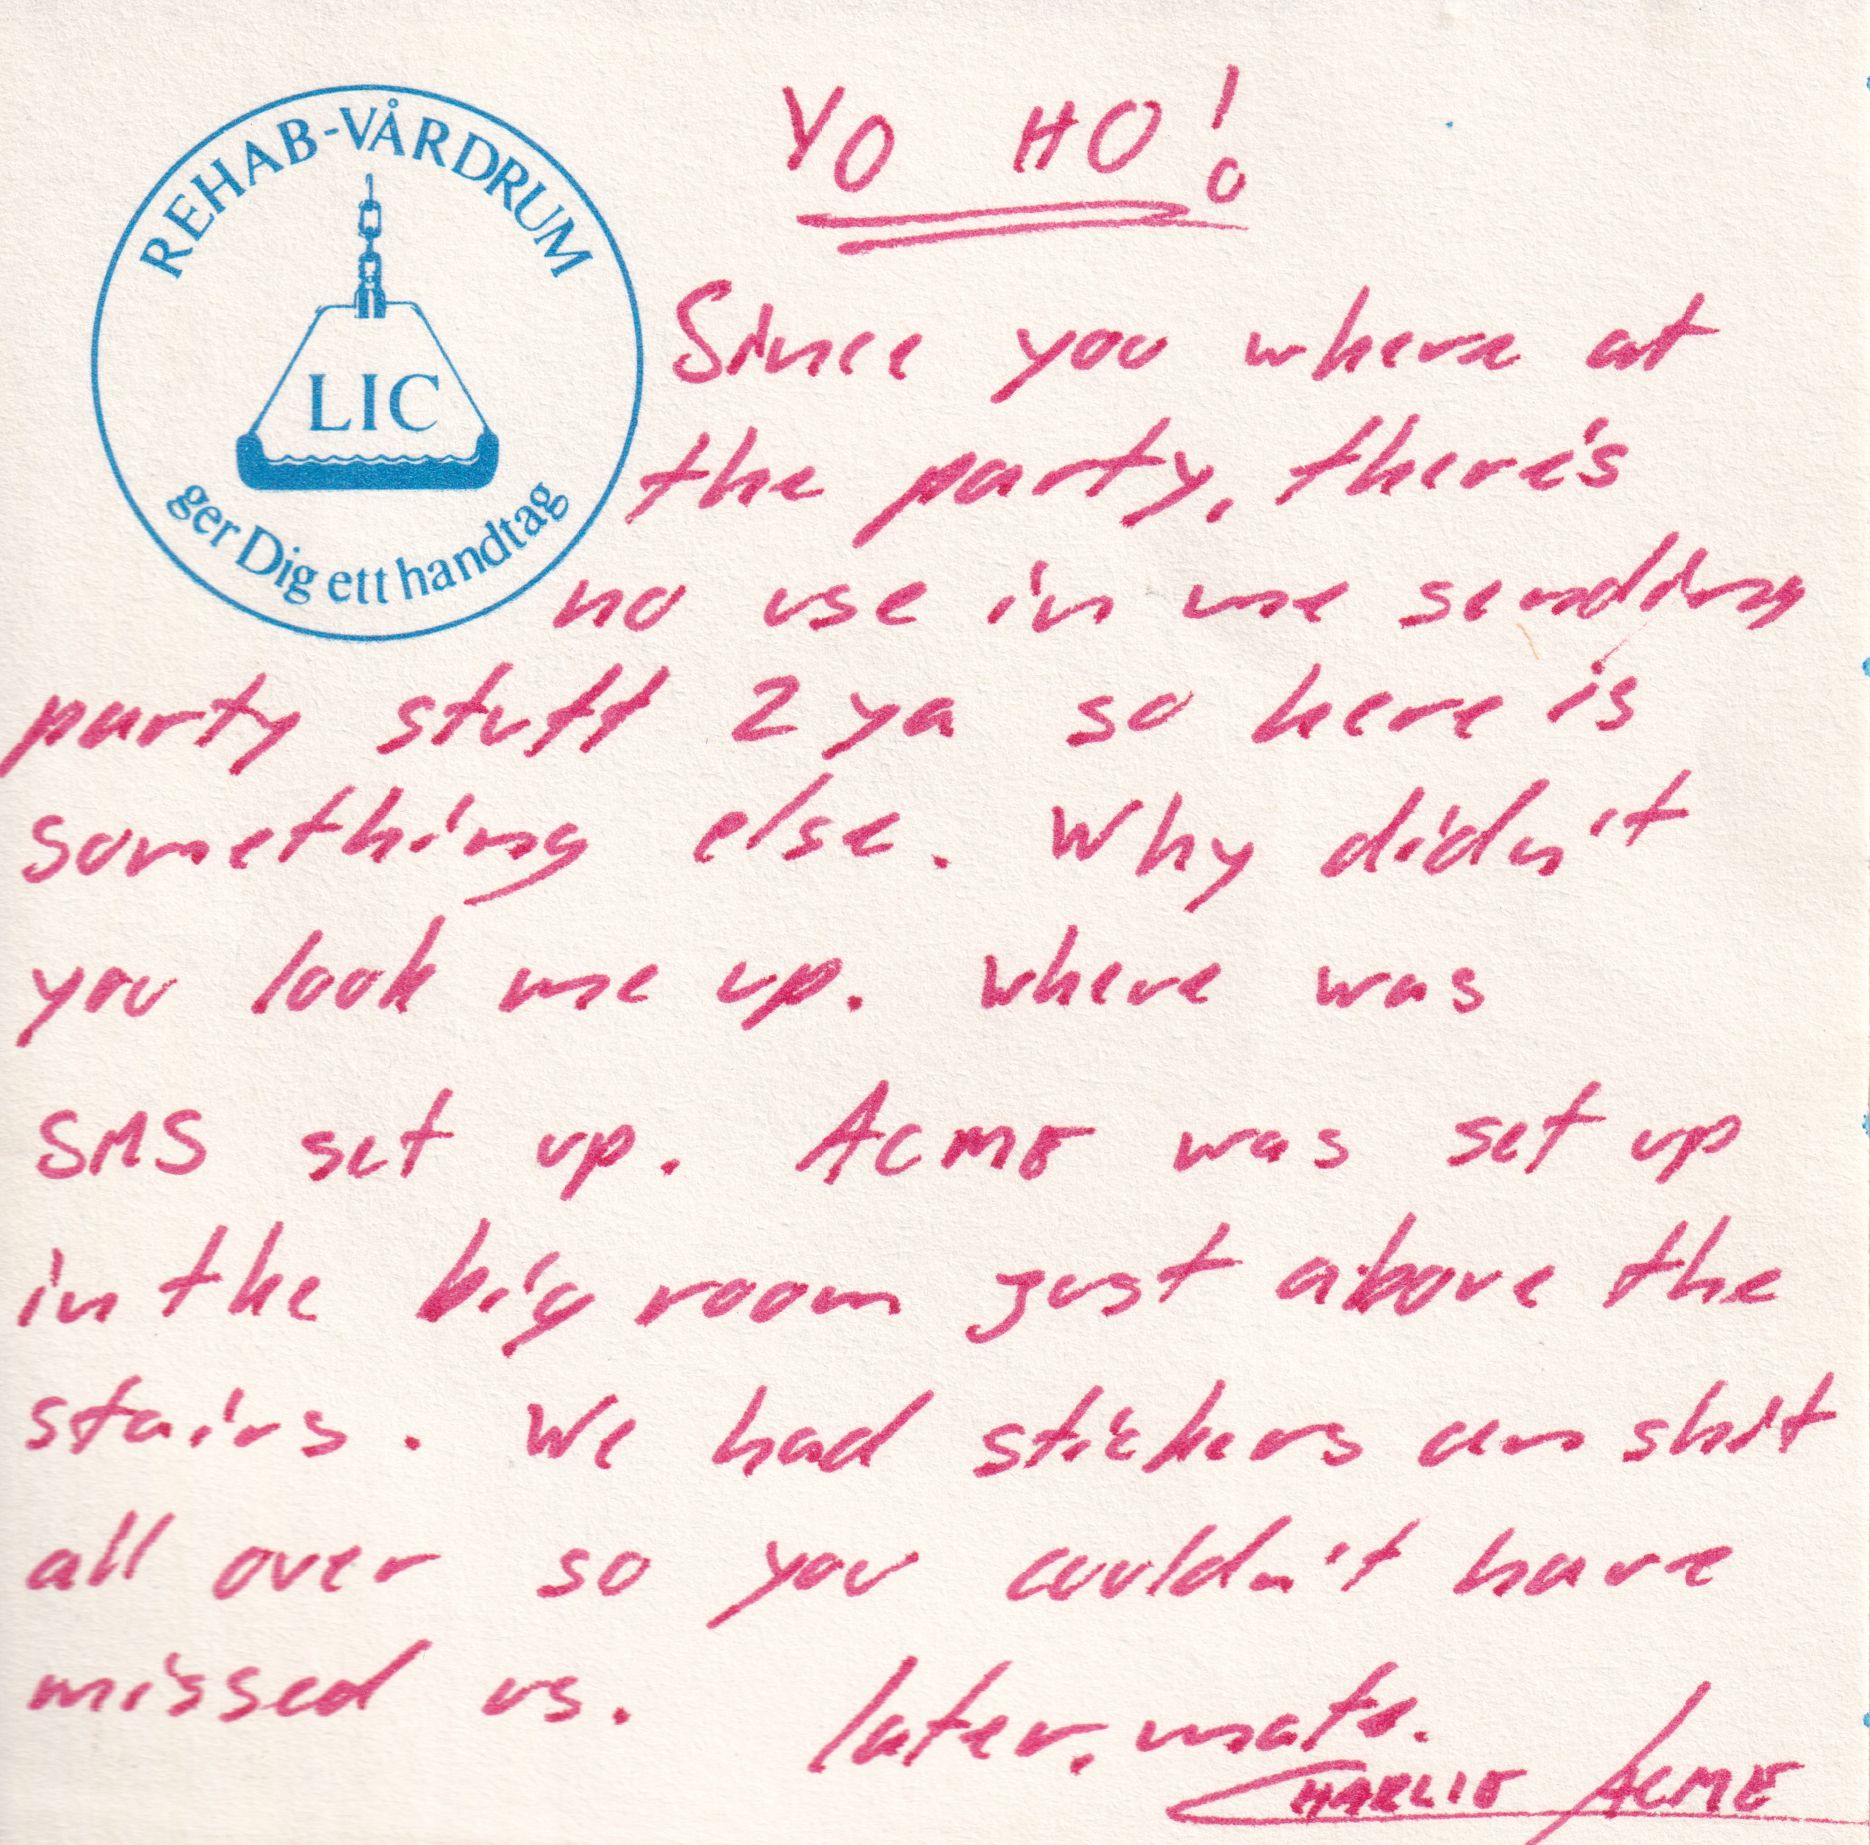 REHAB-VÅRDRUM
LIC
ger Dig ett handtag
YO HO!
Since you where at
the party, there's
no use in me sending
party stuff 2 ya so here is
something else. Why didn't
you look me up. where was
SMS set up. ACME was set up
in the big room just above the
stairs. We had stickers an shit
all over so you couldn't have
missed us. later, mate.
CHARLIE ACME